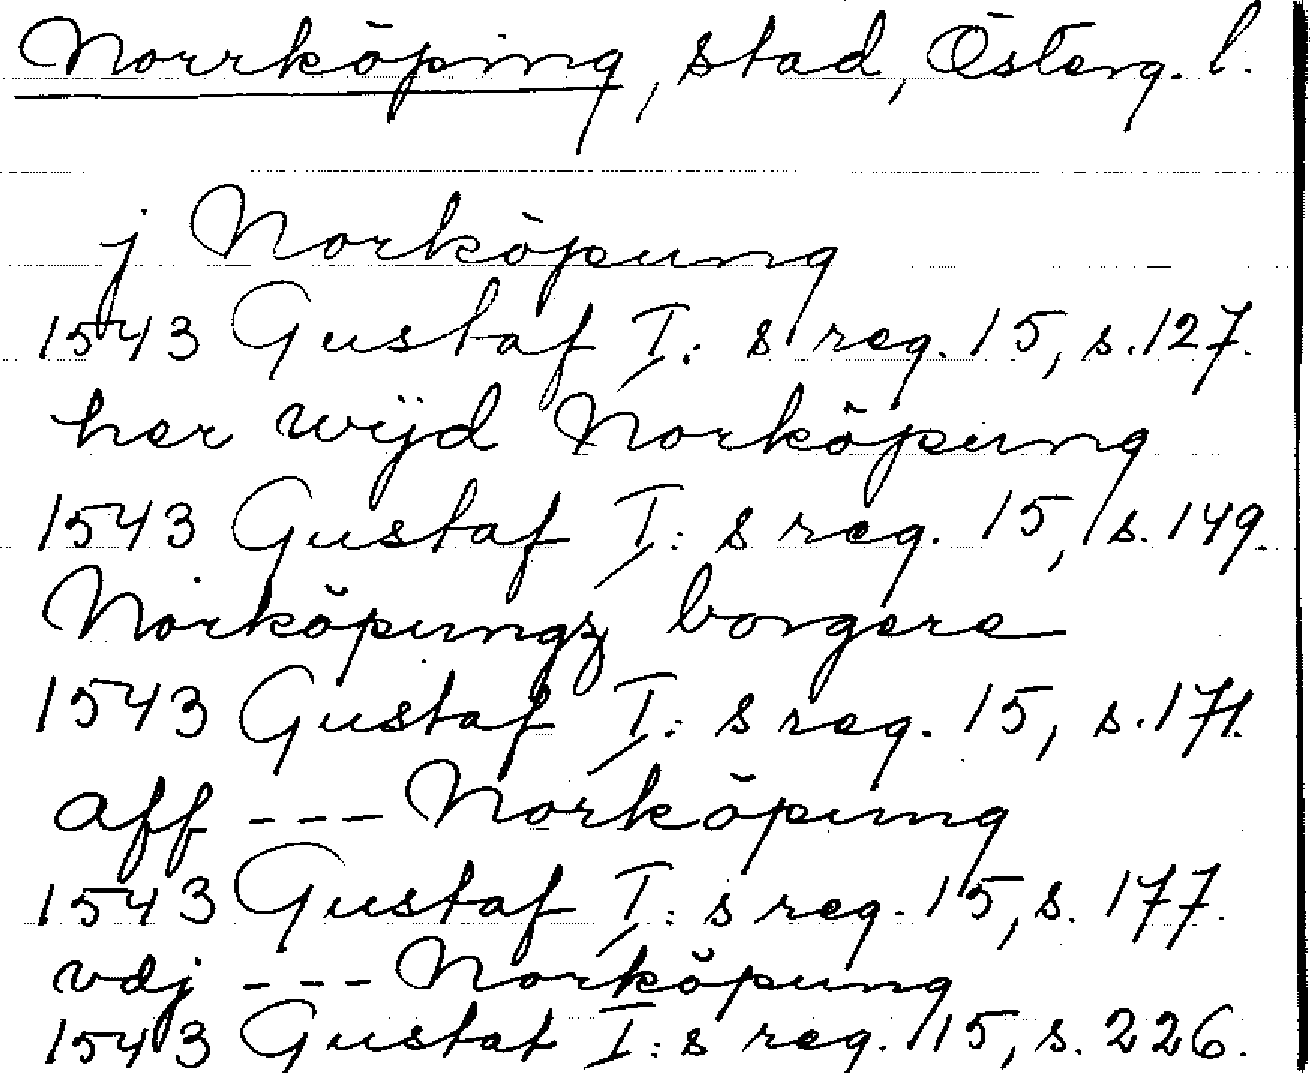 Norrköping, stad, Österg. l.
j Norköpung
1543 Gustaf I:s reg. 15, s. 127.
her wijd Norköpung
1543 Gustaf I:s reg. 15, s. 149.
Norköpungz borgere
1543 Gustaf I:s reg. 15, s. 171.
aff --- Norköpung
1543 Gustaf I:s reg. 15, s. 177.
vdj --- Norköpung
1543 Gustaf I:s reg. 15, s. 226.